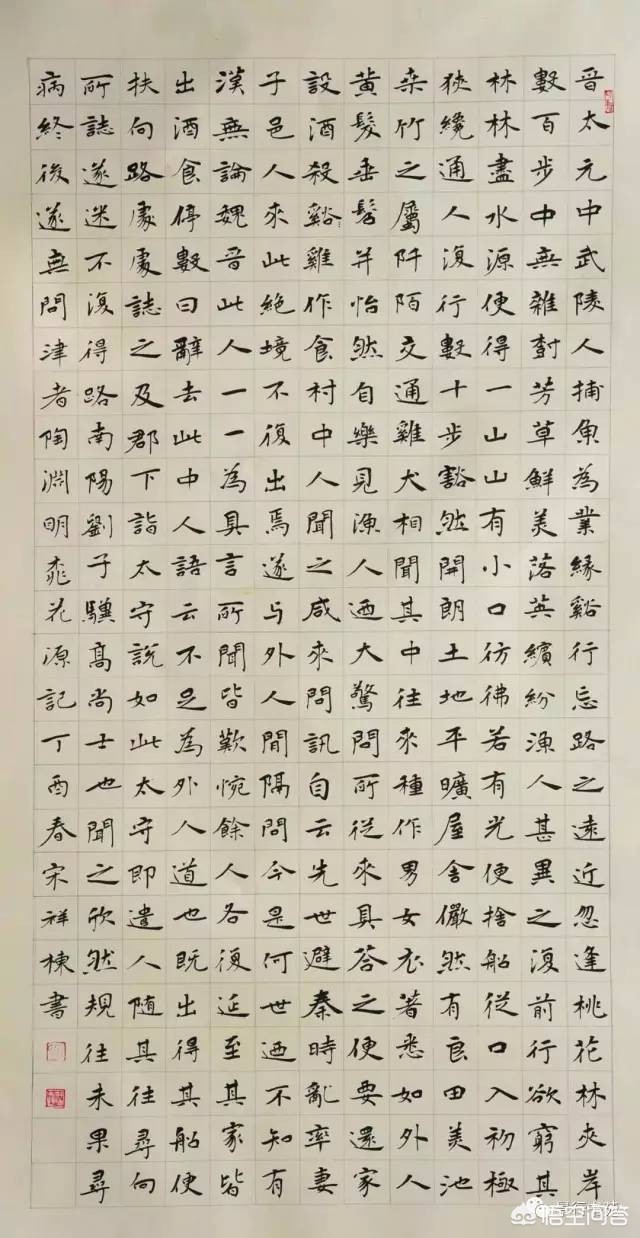 晉太元中武陵人捕魚為業緣谿行忘路之遠近忽逢桃花林夾岸
數百步中無雜樹芳草鮮美落英繽紛漁人甚異之復前行欲窮其
林林盡水源便得一山山有小口彷彿若有光便捨船從口入初極
狹纔通人復行數十步豁然開朗土地平曠屋舍儼然有良田美池
桑竹之屬阡陌交通雞犬相聞其中往來種作男女衣著悉如外人
黃髮垂髫并怡然自樂見漁人迺大驚問所從來具答之便要還家
設酒殺谿雞作食村中人聞之咸來問訊自云先世避秦時亂率妻
子邑人來此絕境不復出焉遂与外人間隔問今是何世迺不知有
漢無論魏晉此人一一為具言所聞皆歎惋餘人各復延至其家皆
出酒食停數日辭去此中人語云不足為外人道也既出得其船便
扶向路處處誌之及郡下詣太守說如此太守即遣人随其往尋向
所誌遂迷不復得路南陽劉子驥高尚士也聞之欣然規往未果尋
病終後遂無問津者陶淵明桃花源記丁酉春宋祥棟書
悟空问答